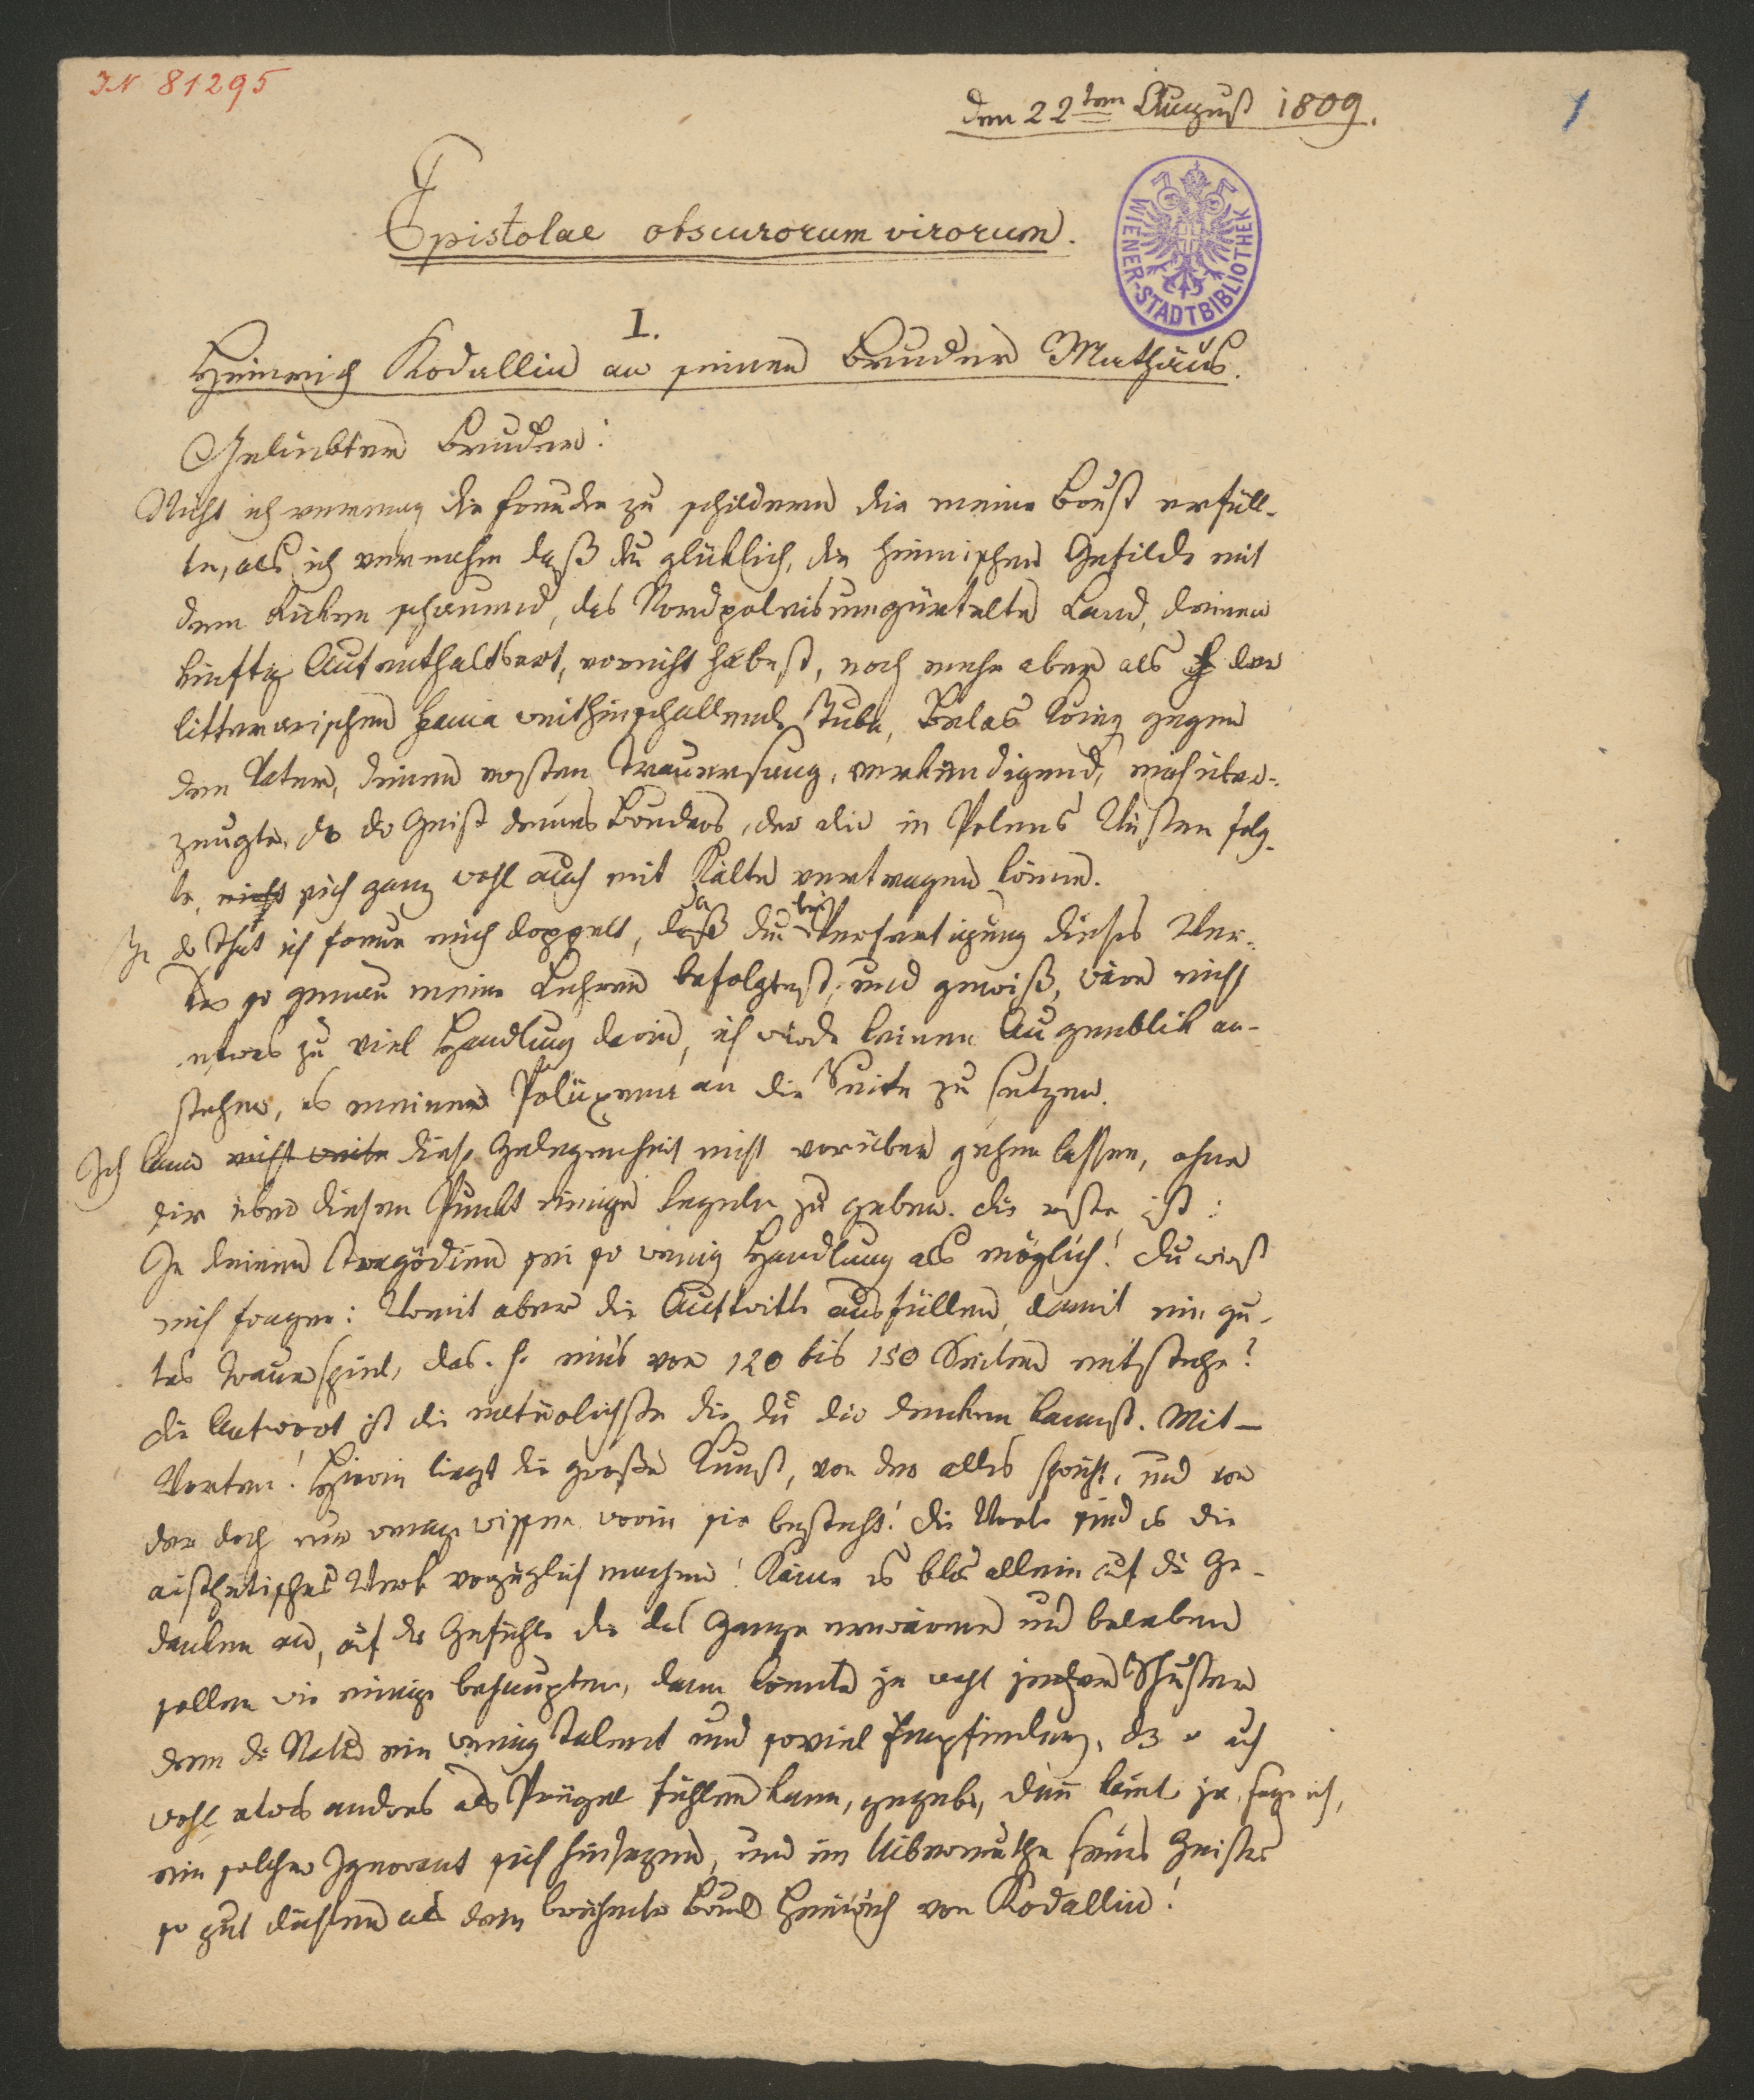 IN 81295
den 22ten August 1809.
1
Epistolae obscurorum virorum.
WIENER-STADTBIBLIOTHEK
I.
Heinrich Kodallin an seinen Bruder Mathäus.
Geliebter Bruder!
Nicht ich vermag die Freude zu schildern die meine Brust erfüll-
te, als ich vernahm daß du glüklich, die heimischen Gefilde mit
dem Rüken schauend, das Nordpoleisumgürtelte Land, deinen
künftig Aufenthaltsort, erreicht habest, noch mehr aber als der
litterarischen Fama weithinschallende Tuba, Belas Krieg gegen
den Vater, deinen ersten Trauersang, verkündigend, mich über-
zeugte, dß dr Geist deines Bruders, der dir in Polens Wüsten folg-
te, nicht sich ganz wohl auch mit Kälte vertragen könne.
In dr That ich freue mich doppelt, da du bei Verfertigung dieses Wer-
kes so genau meine Lehren befolgtest, und gewiß, wäre nicht
etwas zu viel Handlung darin, ich würde keinen Augenblik an-
stehen, es meiner Polüxena an die Seite zu setzen.
Ich kann nicht weiter diese Gelegenheit nicht vorüber gehen lassen, ohne
dir über diesen Punkt einige Regeln zu geben. Die erste ist:
In deinen Tragödien sei so wenig Handlung als möglich! Du wirst
mich fragen: Womit aber die Auftritte ausfüllen, damit ein gu-
tes Trauerspiel, das. h. eines von 120 bis 150 Seiten entstehe?
Die Antwort ist die natürlichste die du dir denken kannst. Mit –
Worten! Hierin liegt die große Kunst, von der alles spricht, und von
der doch nur wenige wissen worin sie besteht! Die Worte sind es die
aisthetisches Werk vorzüglich machen! Käme es blos allein auf die Ge-
danken an, auf die Gefühle die das Ganze erwärmen und beleben
sollen wie einige behaupten, dann könnte ja wohl jeder Schuster
dem die Natur ein wenig Talent und soviel Empfindung, dß er auch
wohl etwas anders als Prügel fühlen kann, gegeben, dann könnt ja, sage ich,
ein solcher Ignorant sich hinsezen, und im Uibermuthe seines Geistes
so gut dichten als dein berühmter Bruder Heinrich von Kodallin!